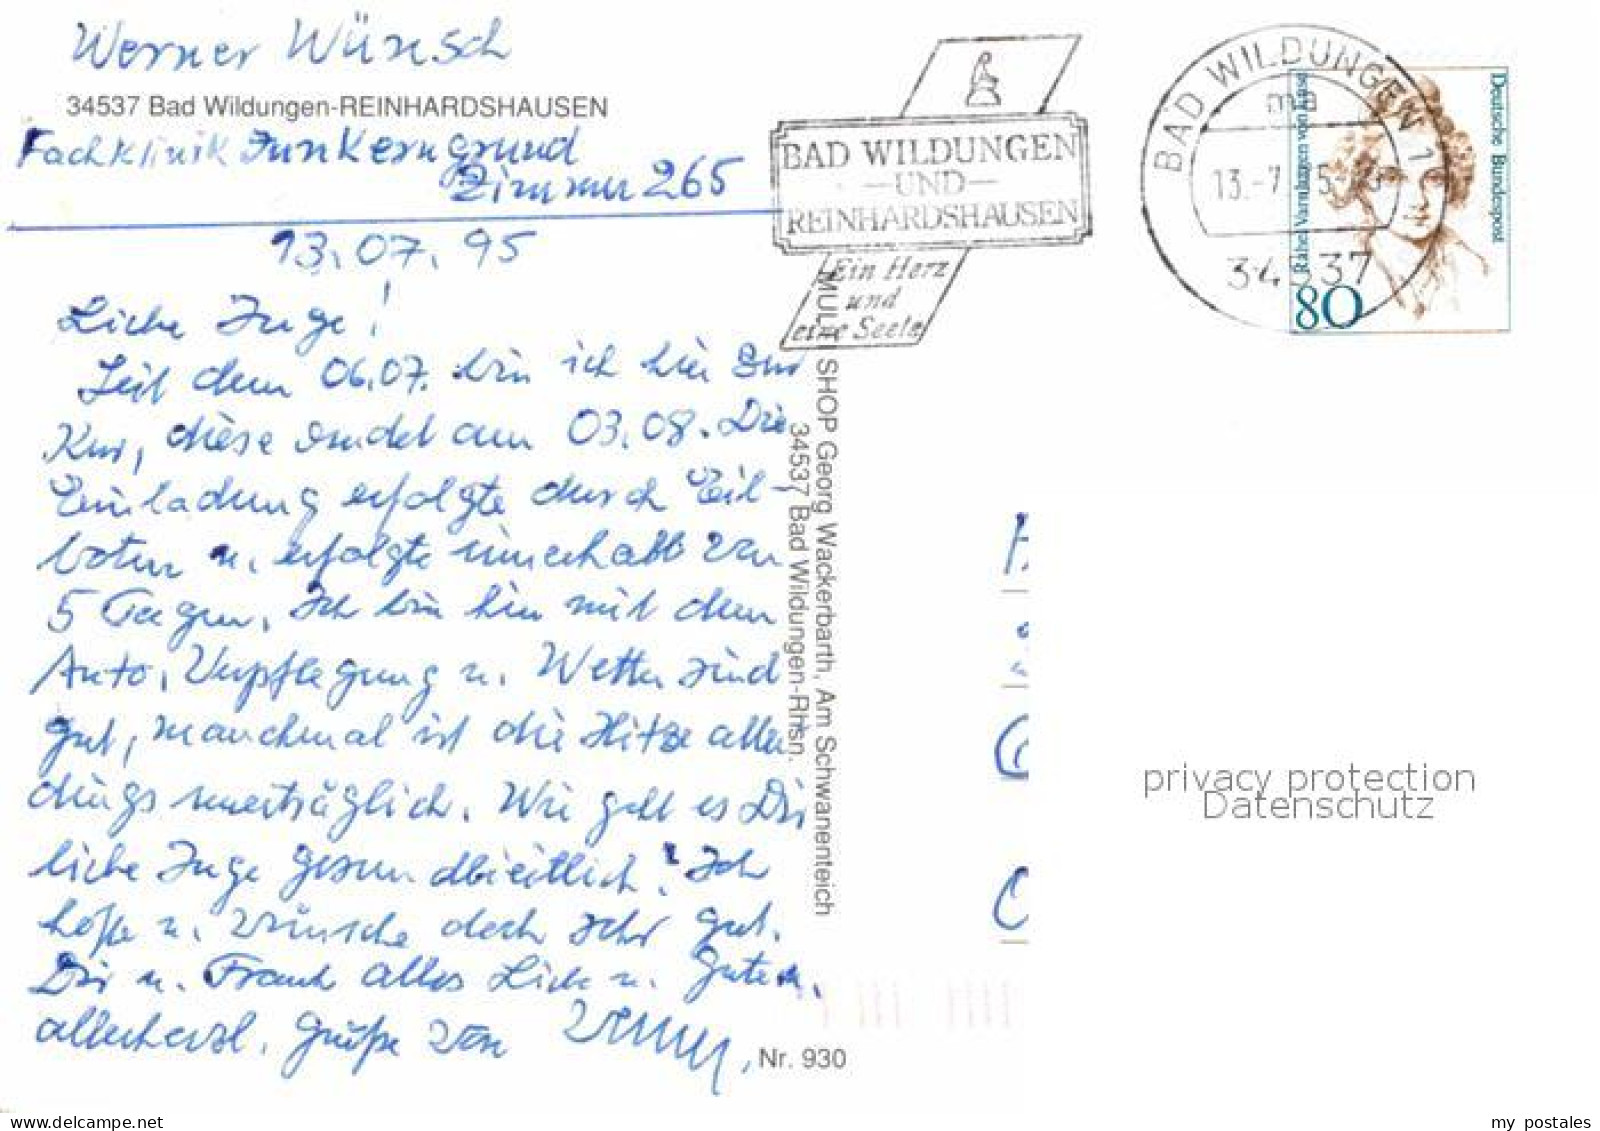 Werner Wünsch
34537 Bad Wildungen-REINHARDSHAUSEN
Fachklinik Junkerngrund
Zimmer 265
13.07.95
Liebe Inge!
Seit dem 06.07. bin ich hier zur
Kur, diese endet am 03.08. Die
Einladung erfolgte durch Eil-
boten u. erfolgte innerhalb von
5 Tagen. Ich bin hier mit dem
Auto. Verpflegung u. Wetter sind
gut, manchmal ist die Hitze aller
dings unerträglich. Wie geht es Dir
liebe Inge gesundheitlich? Ich
hoffe u. wünsche doch sehr gut.
Dir u. Frank alles Liebe u. Gute u.
allerherzl. Grüße von Werner.
Nr. 930
MULTI SHOP Georg Wackerbarth, Am Schwanenteich
34537 Bad Wildungen-Rhsn.
BAD WILDUNGEN
—UND—
REINHARDSHAUSEN
Ein Herz
und
eine Seele
BAD WILDUNGEN 1
ma
13.-7
34537
Deutsche Bundespost
Rahel Varnhagen von Ense
80
privacy protection
Datenschutz
www.delcampe.net
my_postales